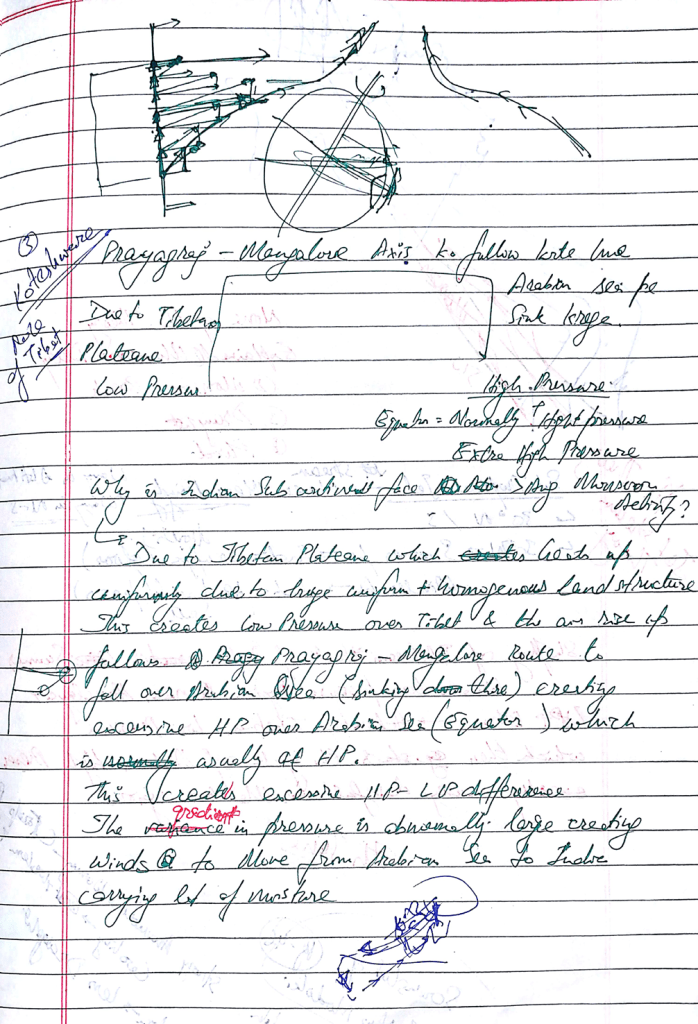 ③
Koteshware
Role
of Tibet
Prayagraj - Mangalore Axis ko follow krte hue
Arabian sea pe
Sink krega.
Due to Tibetan
Plateane
Low Pressur
High Pressure
Equator = Normally ↑ Hight pressure
Extra High Pressure
Why is Indian Sub continent face > Avg Monsoon
Activity?
Due to Tibetan Plateane which creates heats up
uniformly due to huge uniform + homogenous land structure
This creates Low Pressure over Tibet & the air rise up
follows Prayagraj - Mangalore Route to
fall over Arabian Sea (Sinking down there) creating
excessive HP over Arabian Sea (Equator) which
is normally usually of HP.
This creates excessive HP - LP difference
gradient
The in pressure is abnormally large creating
winds to Move from Arabian Sea to India
carrying lot of moisture